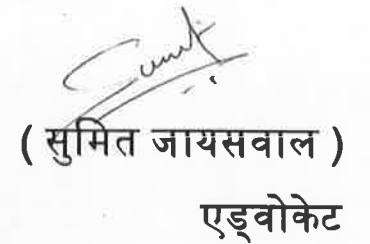 Sumit
( सुमित जायसवाल )
एड्वोकेट